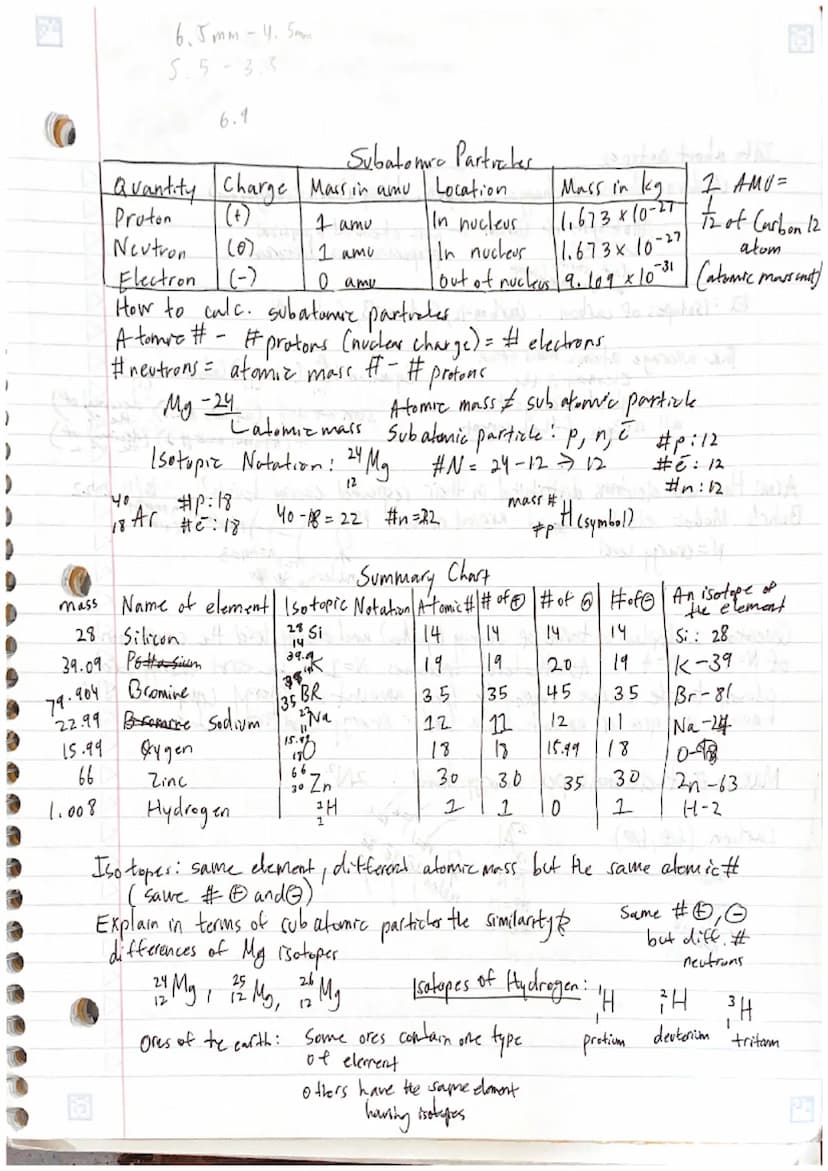 6.5mm - 4.5mm
5.5 - 3.5
6.9
Subatomic Particles
Quantity | Charge | Mass in amu | Location | Mass in kg
Proton | (+) | 1 amu | In nucleus | 1.673 × 10⁻²⁷
Neutron | (0) | 1 amu | In nucleus | 1.673 × 10⁻²⁷
Electron | (-) | 0 amu | out of nucleus | 9.109 × 10⁻³¹
1 AMU =
1/12 of Carbon 12
atom
(atomic mass unit)
How to calc. subatomic particles
Atomic # - # protons (nuclear charge) = # electrons
# neutrons = atomic mass # - # protons
Mg -24
atomic mass
Atomic mass ≠ subatomic particle
Subatomic particle: p, n, e⁻
Isotopic Notation: ²⁴₁₂Mg
#N = 24-12 → 12
#p: 12
#e⁻: 12
#n: 12
⁴⁰₁₈Ar
#p: 18
#e⁻: 18
40-18 = 22 #n=22
mass #
#p H (symbol)
Summary Chart
mass | Name of element | Isotopic Notation | Atomic # | # of ⊕ | # of n | # of ⊖ | An isotope of the element
28 | Silicon | ²⁸₁₄Si | 14 | 14 | 14 | 14 | Si: 28
39.09 | Pottasium | ³⁹·⁹K | 19 | 19 | 20 | 19 | K-39
79.904 | Bromine | ₃₅BR | 35 | 35 | 45 | 35 | Br-81
22.99 | Sodium | ²³₁₁Na | 12 | 11 | 12 | 11 | Na-24
15.99 | Oxygen | O | 18 | 18 | 15.99 | 18 | O-
66 | Zinc | ⁶⁶₃₀Zn | 30 | 30 | 35 | 30 | Zn-63
1.008 | Hydrogen | ¹₁H | 1 | 1 | 0 | 1 | H-2
Isotopes: same element, different atomic mass but the same atomic #
(same # ⊕ and ⊖)
Explain in terms of subatomic particles the similarity &
differences of Mg isotopes
Same # ⊕, ⊖
but diff. #
neutrons
²⁴₁₂Mg, ²⁵₁₂Mg, ²⁶₁₂Mg
Isotopes of Hydrogen: ¹₁H ²₁H ³₁H
protium deuterium tritium
Ores of the earth: Some ores contain one type
of element
others have the same element
having isotopes